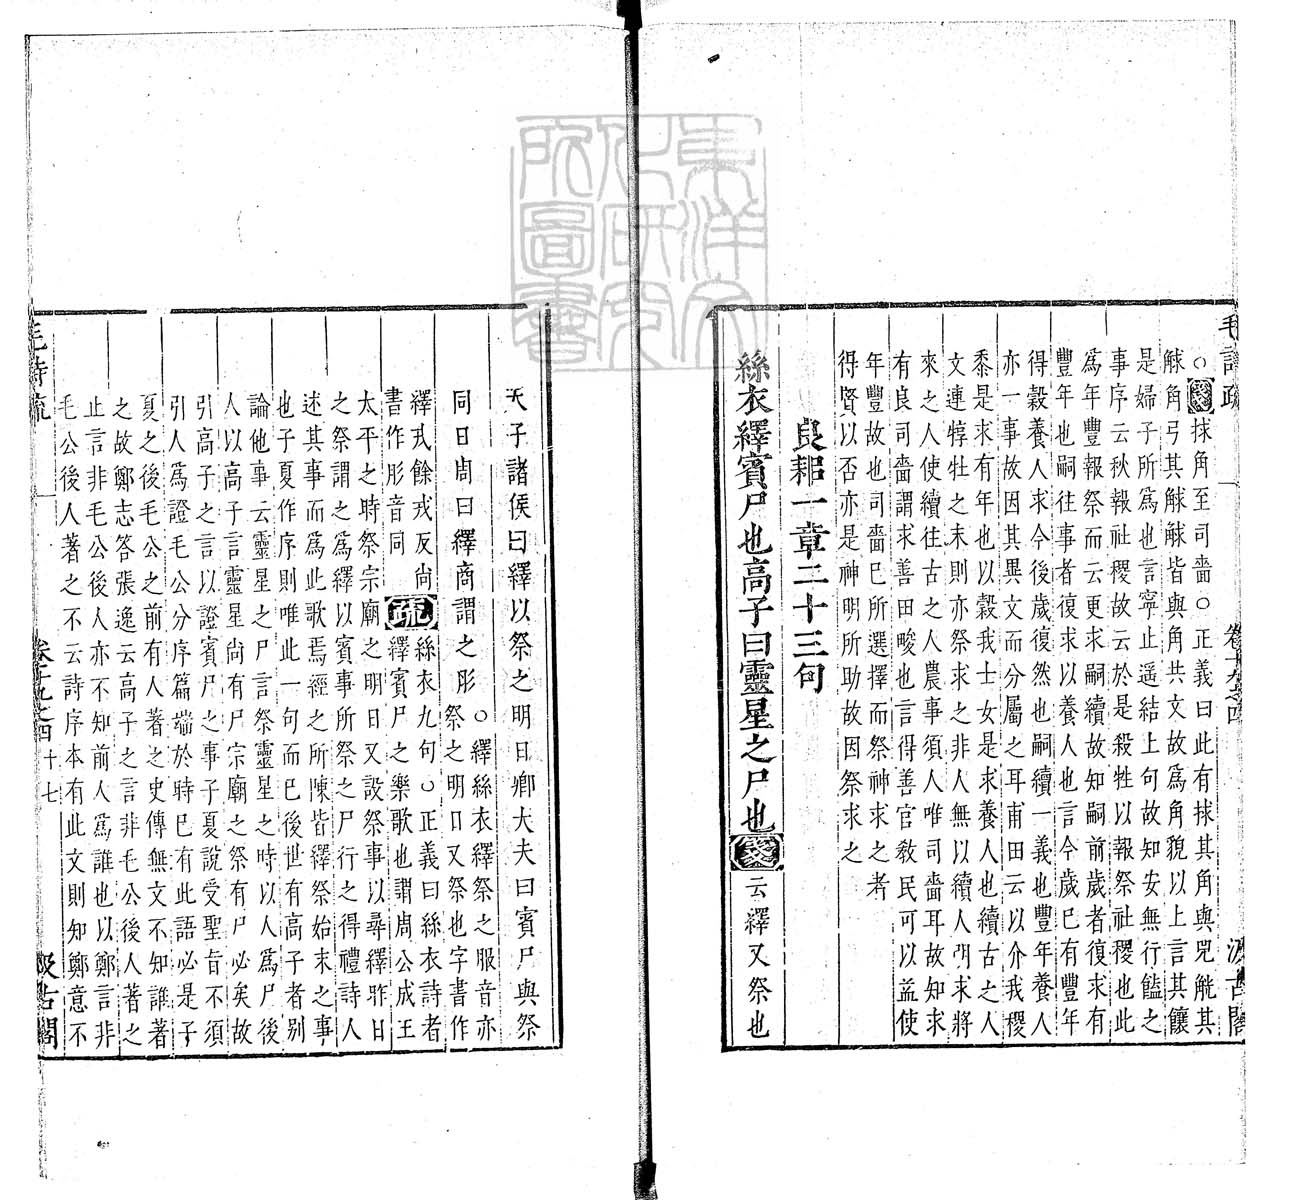 毛詩疏
卷十九之四
汲古閣
○箋捄角至司嗇○正義曰此有捄其角與兕觥其
觩角弓其觩觩皆與角共文故爲角貌以上言其饟
是婦子所爲也言寧止遥結上句故知安無行饁之
事序云秋報社稷故云於是殺牲以報祭社稷也此
爲年豐報祭而云更求嗣續故知嗣前歲者復求有
豐年也嗣往事者復求以養人也言今歲巳有豐年
得穀養人求今後歲復然也嗣續一義也豐年養人
亦一事故因其異文而分屬之耳甫田云以介我稷
黍是求有年也以穀我士女是求養人也續古之人
文連犉牡之末則亦祭求之非人無以續人明求將
來之人使續往古之人農事須人唯司嗇耳故知求
有良司嗇謂求善田畯也言得善官敎民可以益使
年豐故也司嗇巳所選擇而祭神求之者
得賢以否亦是神明所助故因祭求之
良耜一章二十三句
絲衣繹賓尸也高子曰靈星之尸也箋云繹又祭也
天子諸侯曰繹以祭之明日鄉大夫曰賓尸與祭
同日周曰繹商謂之肜○繹絲衣繹祭之服音亦
祭之明日又祭也字書作
繹戎餘戎反尚
書作肜音同疏絲衣九句○正義曰絲衣詩者
繹賓尸之樂歌也謂周公成王
太平之時祭宗廟之明日又設祭事以尋繹昨日
之祭謂之爲繹以賓事所祭之尸行之得禮詩人
述其事而爲此歌焉經之所陳皆繹祭始末之事
也子夏作序則唯此一句而巳後世有高子者别
論他事云靈星之尸言祭靈星之時以人爲尸後
人以高子言靈星尚有尸宗廟之祭有尸必矣故
引高子之言以證賓尸之事子夏說受聖旨不須
引人爲證毛公分序篇端於時巳有此語必是子
夏之後毛公之前有人著之史傳無文不知誰著
之故鄭志答張逸云高子之言非毛公後人著之
止言非毛公後人亦不知前人爲誰也以鄭言非
毛公後人著之不云詩序本有此文則知鄭意不
毛詩疏
卷十九之四
十七
汲古閣